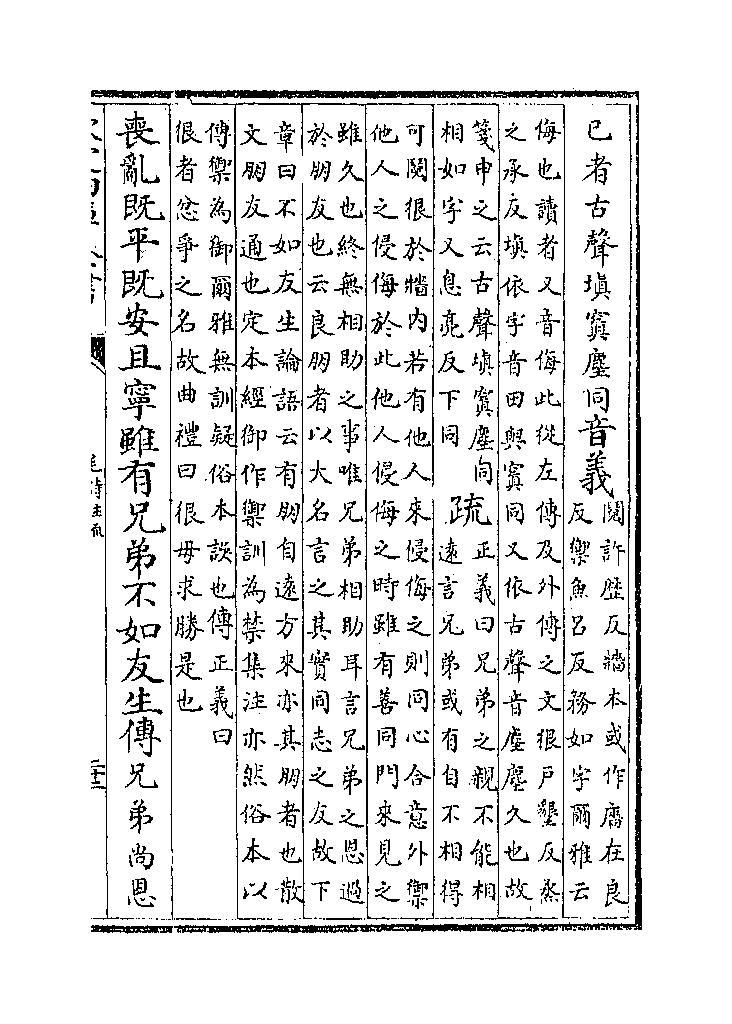 已者古聲填窴塵同音義
鬩許歴反牆本或作廧在良
反禦魚呂反務如字爾雅云
侮也讀者又音侮此從左傳及外傳之文很戸墾反烝
之承反填依字音田與窴同又依古聲音塵塵久也故
箋申之云古聲填窴塵同
相如字又息亮反下同
疏
正義曰兄弟之親不能相
遠言兄弟或有自不相得
可鬩很於牆内若有他人來侵侮之則同心合意外禦
他人之侵侮於此他人侵侮之時雖有善同門來見之
雖久也終無相助之事唯兄弟相助耳言兄弟之恩過
於朋友也云良朋者以大名言之其實同志之友故下
章曰不如友生論語云有朋自遠方來亦其朋者也散
文朋友通也定本經御作禦訓為禁集注亦然俗本以
傳禦為御爾雅無訓疑俗本誤也傳正義曰
很者忿爭之名故曲禮曰很毋求勝是也
喪亂既平既安且寧雖有兄弟不如友生傳兄弟尚恩
毛詩注疏